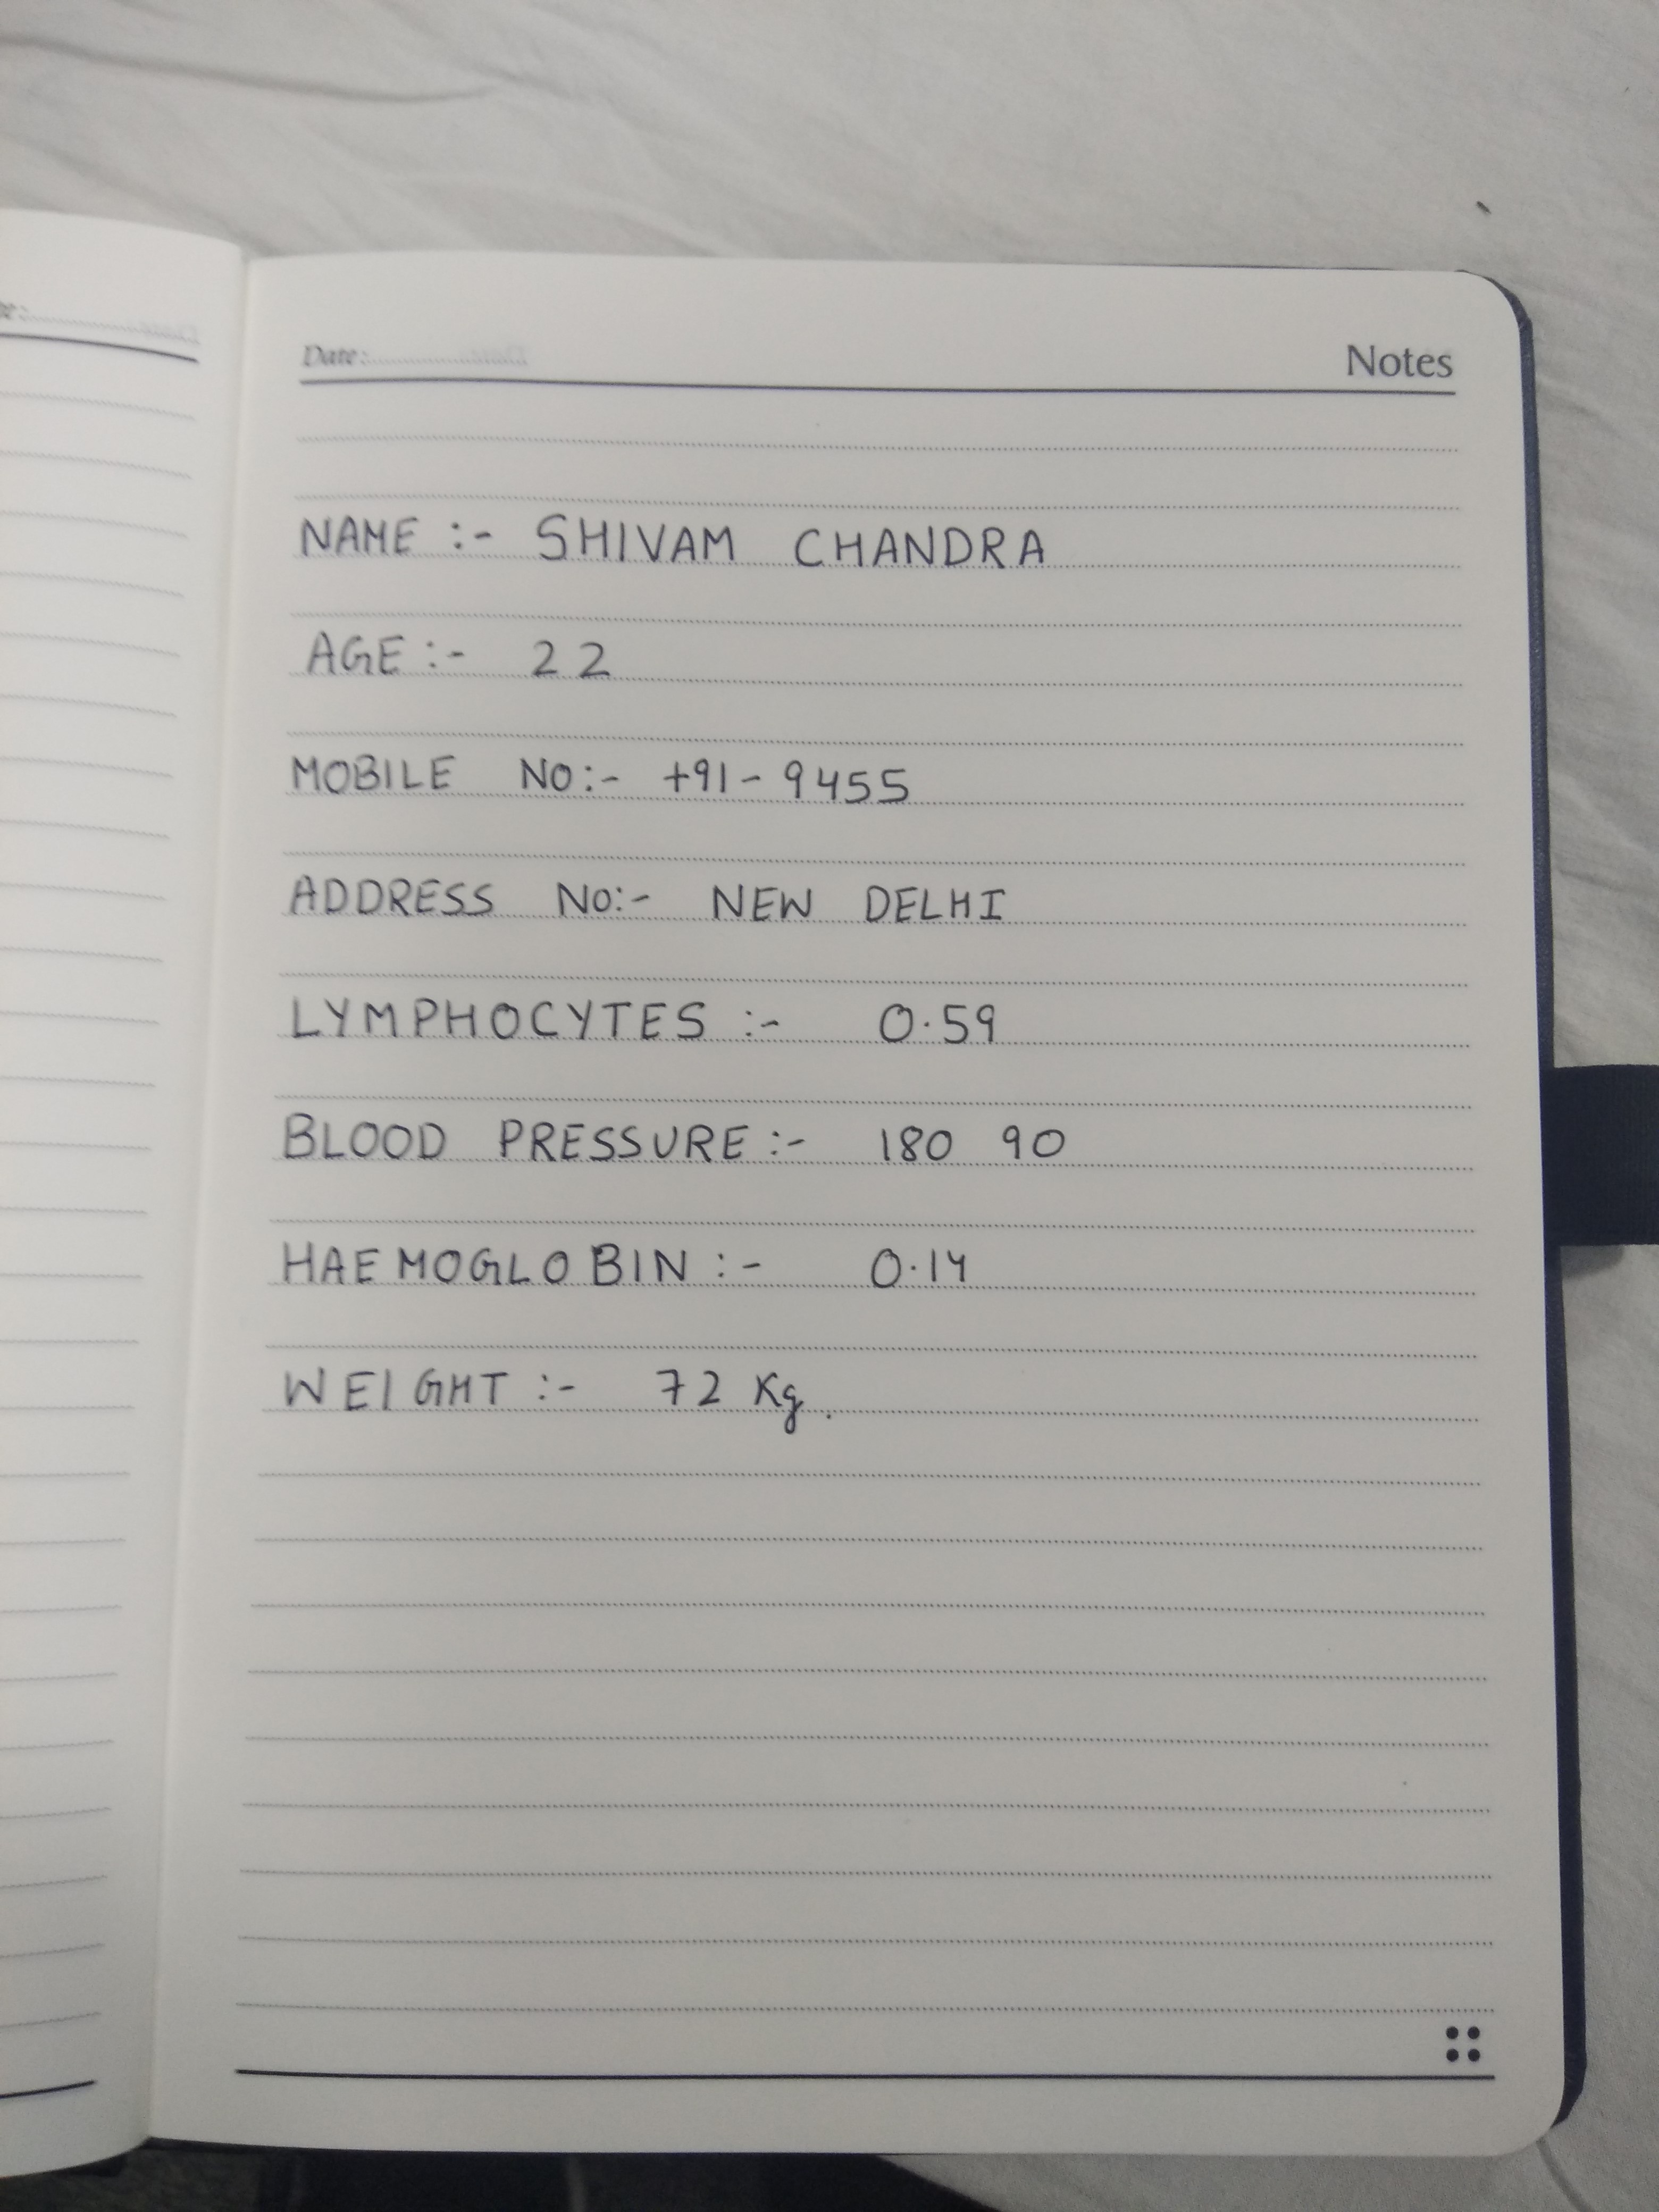 Date:
Notes
NAME :- SHIVAM CHANDRA
AGE :- 22
MOBILE NO:- +91-9455
ADDRESS NO:- NEW DELHI
LYMPHOCYTES :- 0.59
BLOOD PRESSURE :- 180 90
HAEMOGLOBIN :- 0.14
WEIGHT :- 72 Kg.